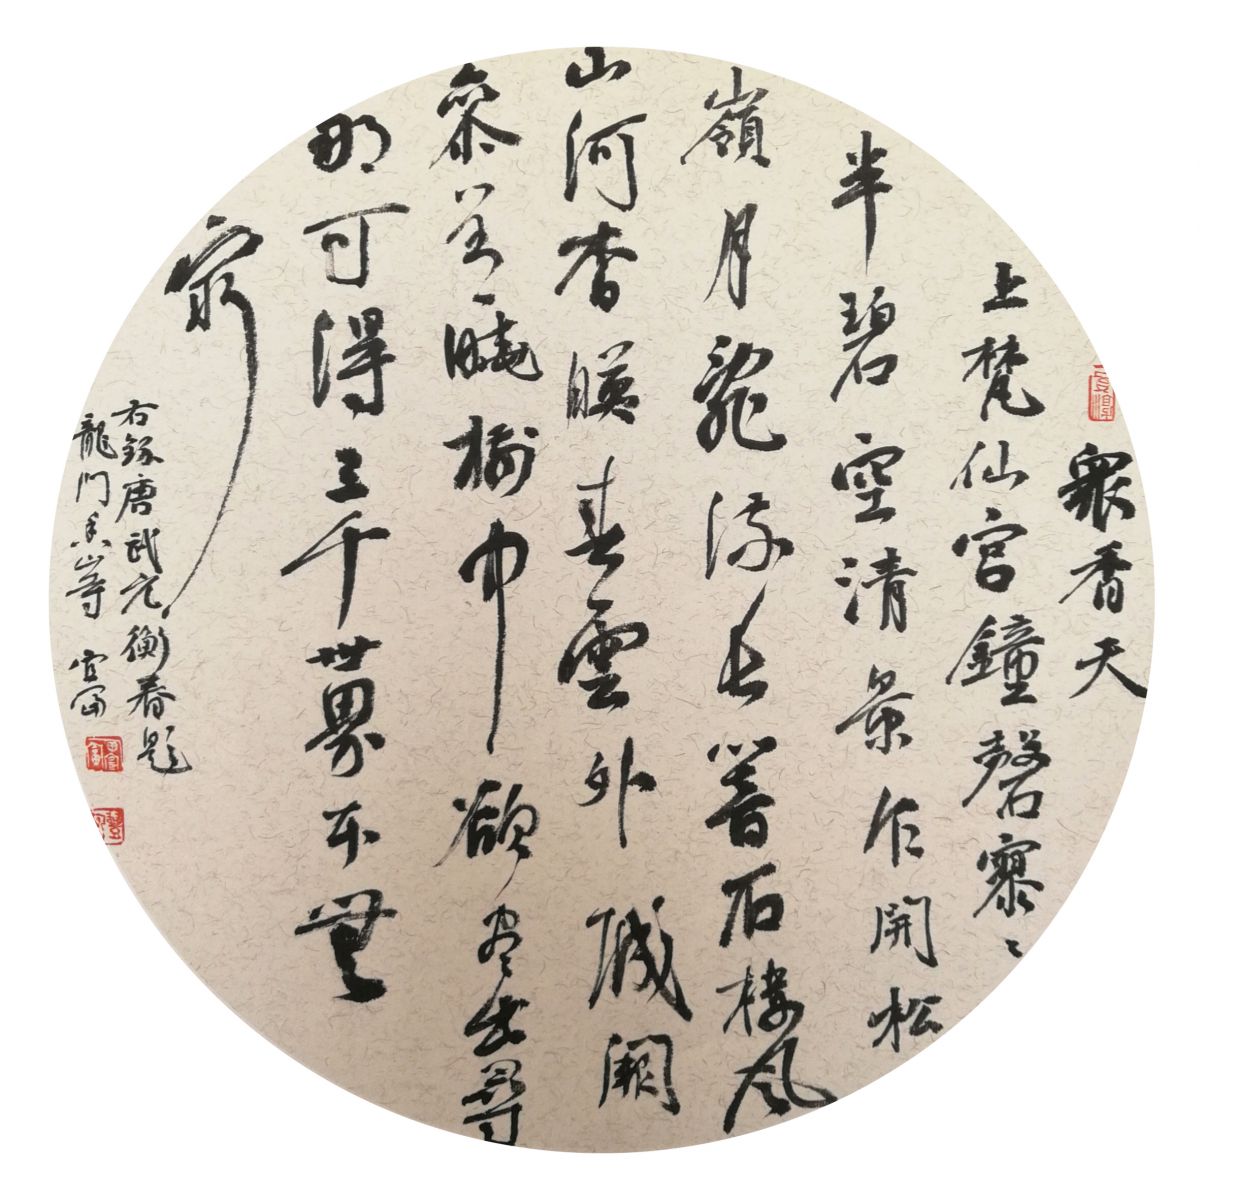 眾香天
上梵仙宮鐘磬寥〻
半碧空清景乍開松
嶺月亂流長響石樓風
山河杳暎春雲外城闕
參差曉樹中欲盡出尋
那可得三千世界本無
窮
右錄唐武元衡春題
龍門香山寺 宜富